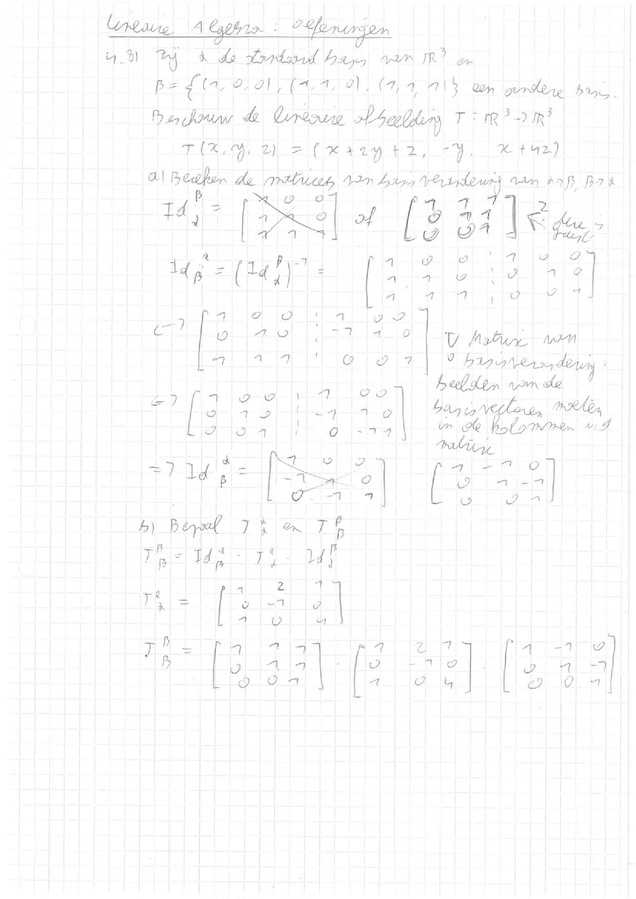 Lineaire Algebra: oefeningen
4.31 Zij α de standaard basis van ℝ³ en
β = {(1, 0, 0), (1, 1, 0), (1, 1, 1)} een andere basis.
Beschouw de lineaire afbeelding T: ℝ³ → ℝ³
T(x, y, z) = (x + 2y + z, -y, x + 4z)
a) Bereken de matrices van basisverandering van α→β, β→α
Id_α^β = [1 0 0; 1 1 0; 1 1 1] of [1 1 1; 0 1 1; 0 0 1] ← 2 deze juist
Id_β^α = (Id_α^β)^-1 = [1 0 0 : 1 0 0; 1 1 0 : 0 1 0; 1 1 1 : 0 0 1]
<-> [1 0 0 : 1 0 0; 0 1 0 : -1 1 0; 1 1 1 : 0 0 1]
∇ Matrix van
basisverandering.
Beelden van de
basisvectoren moeten
in de kolommen v.d
matrix
=> [1 0 0 : 1 0 0; 0 1 0 : -1 1 0; 0 0 1 : 0 -1 1]
=> Id_β^α = [1 0 0; -1 1 0; 0 -1 1] [1 -1 0; 0 1 -1; 0 0 1]
b) Bepaal T_α^α en T_β^β
T_β^β = Id_β^α · T_α^α · Id_α^β
T_α^α = [1 2 1; 0 -1 0; 1 0 4]
T_β^β = [1 1 1; 0 1 1; 0 0 1] · [1 2 1; 0 -1 0; 1 0 4] · [1 -1 0; 0 1 -1; 0 0 1]